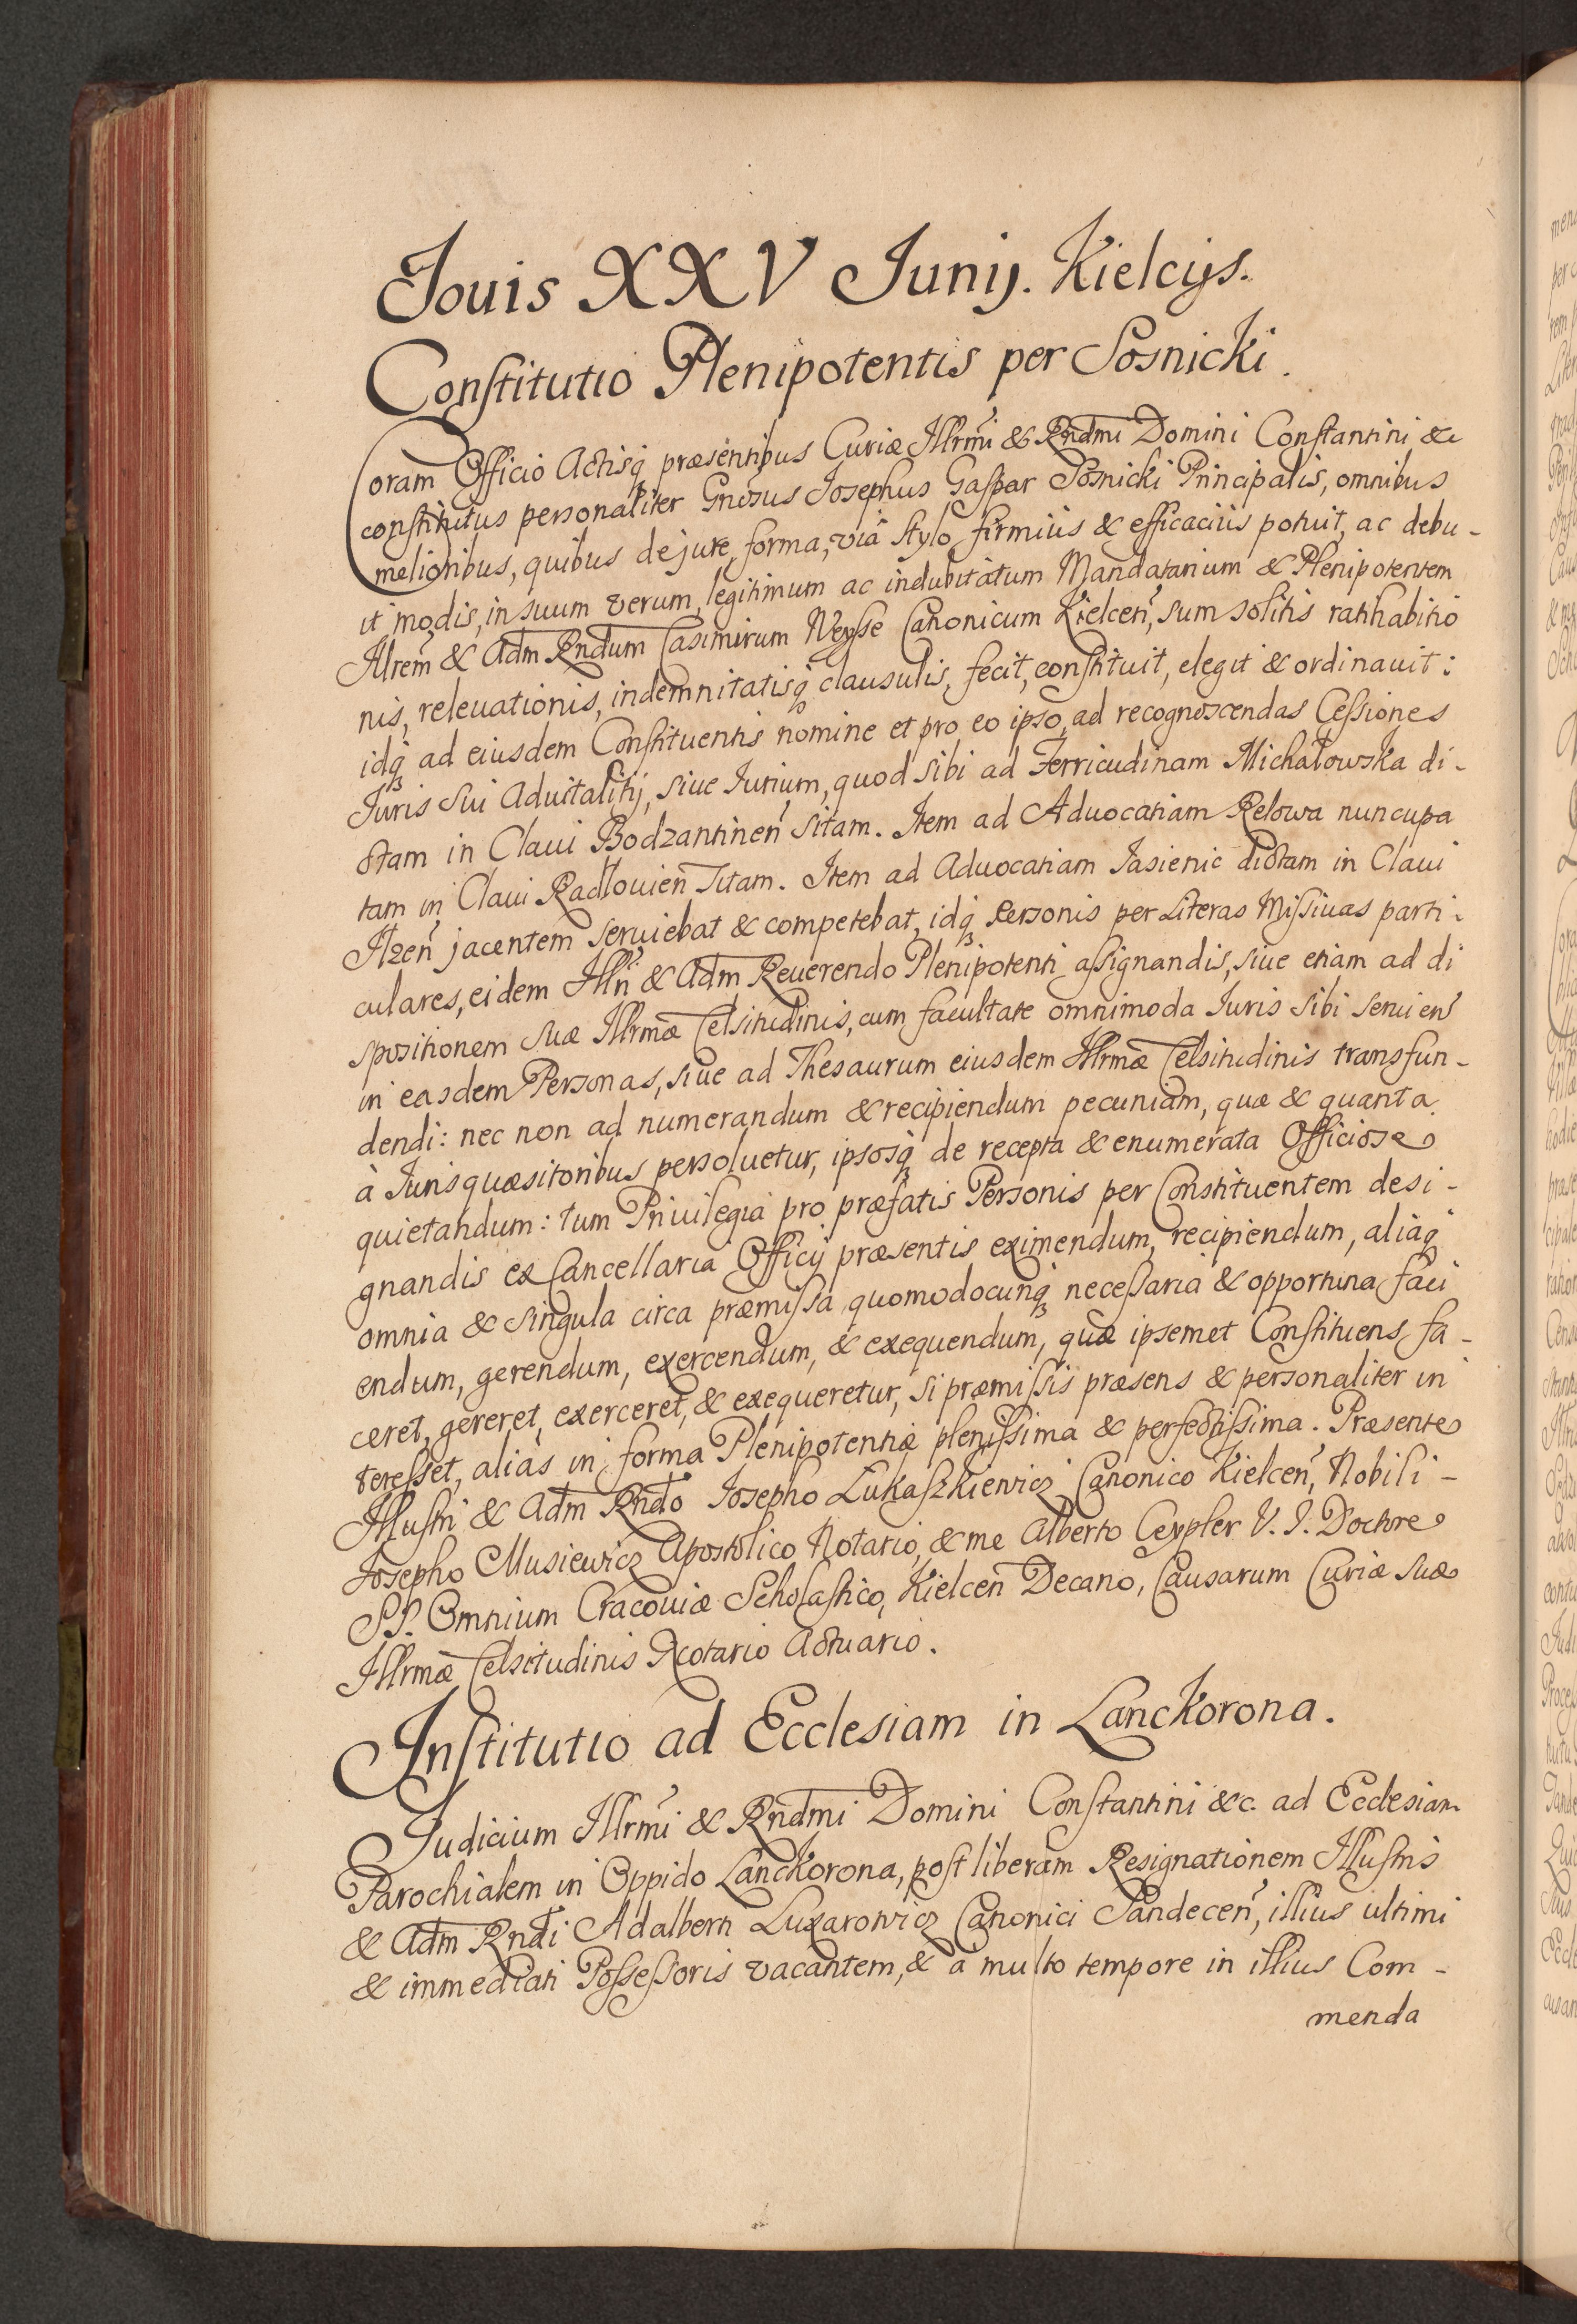 Jouis XXV Junij. Kielcijs.
Constitutio Plenipotentis per Sosnicki.
Coram Officio Actisq́ præsentibus Curiæ Illrmi & Rndmi Domini Constantini &c
constitutus personaliter Gnosus Josephus Gaspar Sosnicki Principalis, omnibus
melioribus, quibus de jure, forma, viâ stylo firmiùs & efficaciùs potuit, ac debu-
it modis, in suum verum, legitimum ac indubitatum Mandatarium & Plenipotentem
Illrem & Adm Rndum Casimirum Neysse Canonicum Kielcen, sum solitis ratihabitio
nis, releuationis, indemnitatisq́ clausulis, fecit, constituit, elegit & ordinauit:
idq́ ad eiusdem Constituentis nomine et pro eo ipso, ad recognoscendas Cessiones
Juris sui Aduitalitij, siue Jurium, quod sibi ad Ferricudinam Michałowska di-
ctam in Claui Bodzantinen sitam. Item ad Aduocatiam Relowa nuncupa
tam in Claui Radłouien sitam. Item ad Aduocatiam Jasienic dictam in Claui
Iłzen jacentem seruiebat & competebat, idq́ Personis per Literas Missiuas parti-
culares, eidem Illri & Adm Reuerendo Plenipotenti assignandis, siue etiam ad di
spositionem suæ Illrmæ Celsitudinis, cum facultate omnimoda Juris sibi seruien
in easdem Personas, siue ad Thesaurum eiusdem Illrmæ Celsitudinis transfun-
dendi: nec non ad numerandum & recipiendum pecuniam, quæ & quanta
à Juris quæsitoribus persoluetur, ipsosq́ de recepta & enumerata Officiose
quietandum: tum Priuilegia pro præfatis Personis per Constituentem desi-
gnandis ex Cancellaria Officij præsentis eximendum, recipiendum, aliaq́
omnia & singula circa præmissa quomodocunq́ necessaria & opportuna faci
endum, gerendum, exercendum, & exequendum, quæ ipsemet Constituens fa-
ceret, gereret, exerceret, & exequeretur, si præmissis præsens & personaliter in
teresset, aliàs in forma Plenipotentiæ plenissima & perfectissima. Præsente
Illustri & Adm Rndo Josepho Łukaszkiewicz Canonico Kielcen, Nobili-
Josepho Musiewicz Apostolico Notario, & me Alberto Ceypler V. J. Doctore
SS. Omnium Cracouiæ Scholastico, Kielcen Decano, Causarum Curiæ Suæ
Illrmæ Celsitudinis Notario Actuario.
Institutio ad Ecclesiam in Lanckorona.
Judicium Illrmi & Rndmi Domini Constantini &c. ad Ecclesiam
Parochialem in Oppido Lanckorona, post liberam Resignationem Illustris
& Adm Rndi Adalberti Łuzarowicz Canonici Sandecen, illius ultimi
& immediati Possessoris vacantem, & a multo tempore in illius Com-
menda